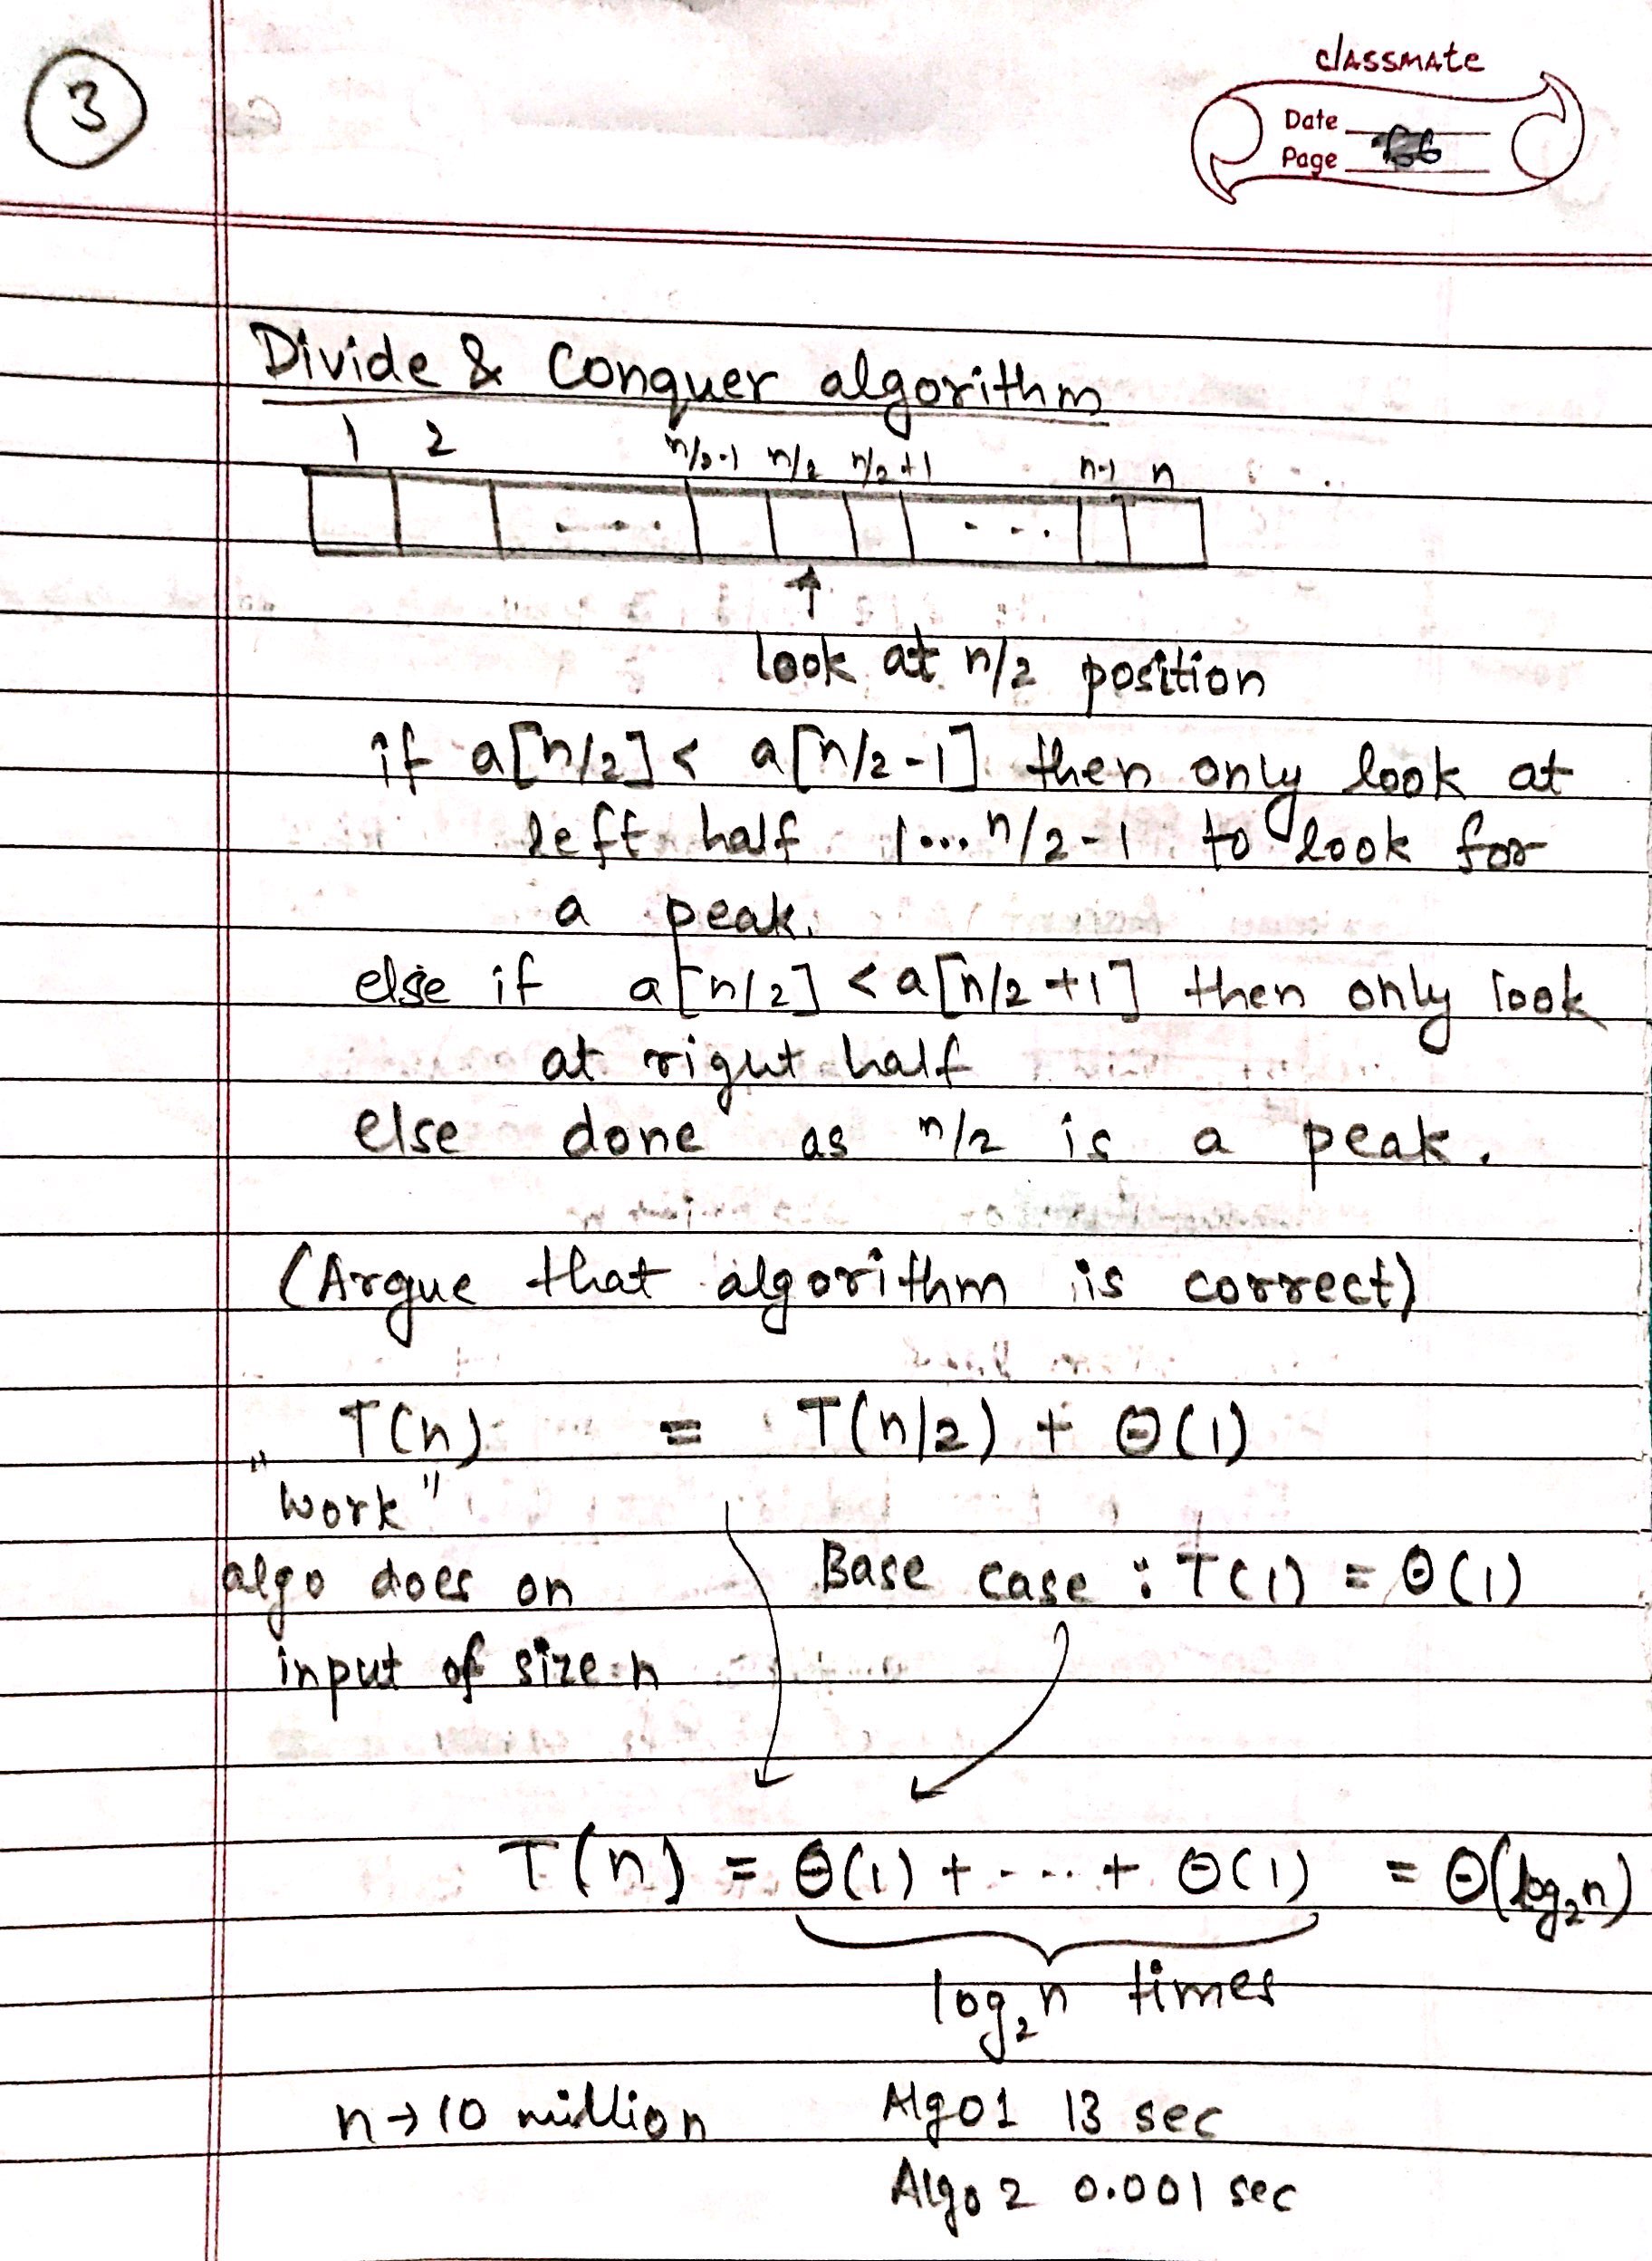 3
classmate
Date
Page
Divide & Conquer algorithm
1 2 n/2-1 n/2 n/2+1 n-1 n
.... ...
↑
look at n/2 position
if a[n/2] < a[n/2-1] then only look at
left half 1...n/2-1 to look for
a peak.
else if a[n/2] < a[n/2+1] then only look
at right half
else done as n/2 is a peak.
(Argue that algorithm is correct)
T(n) = T(n/2) + Θ(1)
"work"
Base case : T(1) = Θ(1)
algo does on
input of size n
T(n) = Θ(1) + .... + Θ(1) = Θ(log₂n)
log₂n times
n → 10 million Algo1 13 sec
Algo 2 0.001 sec